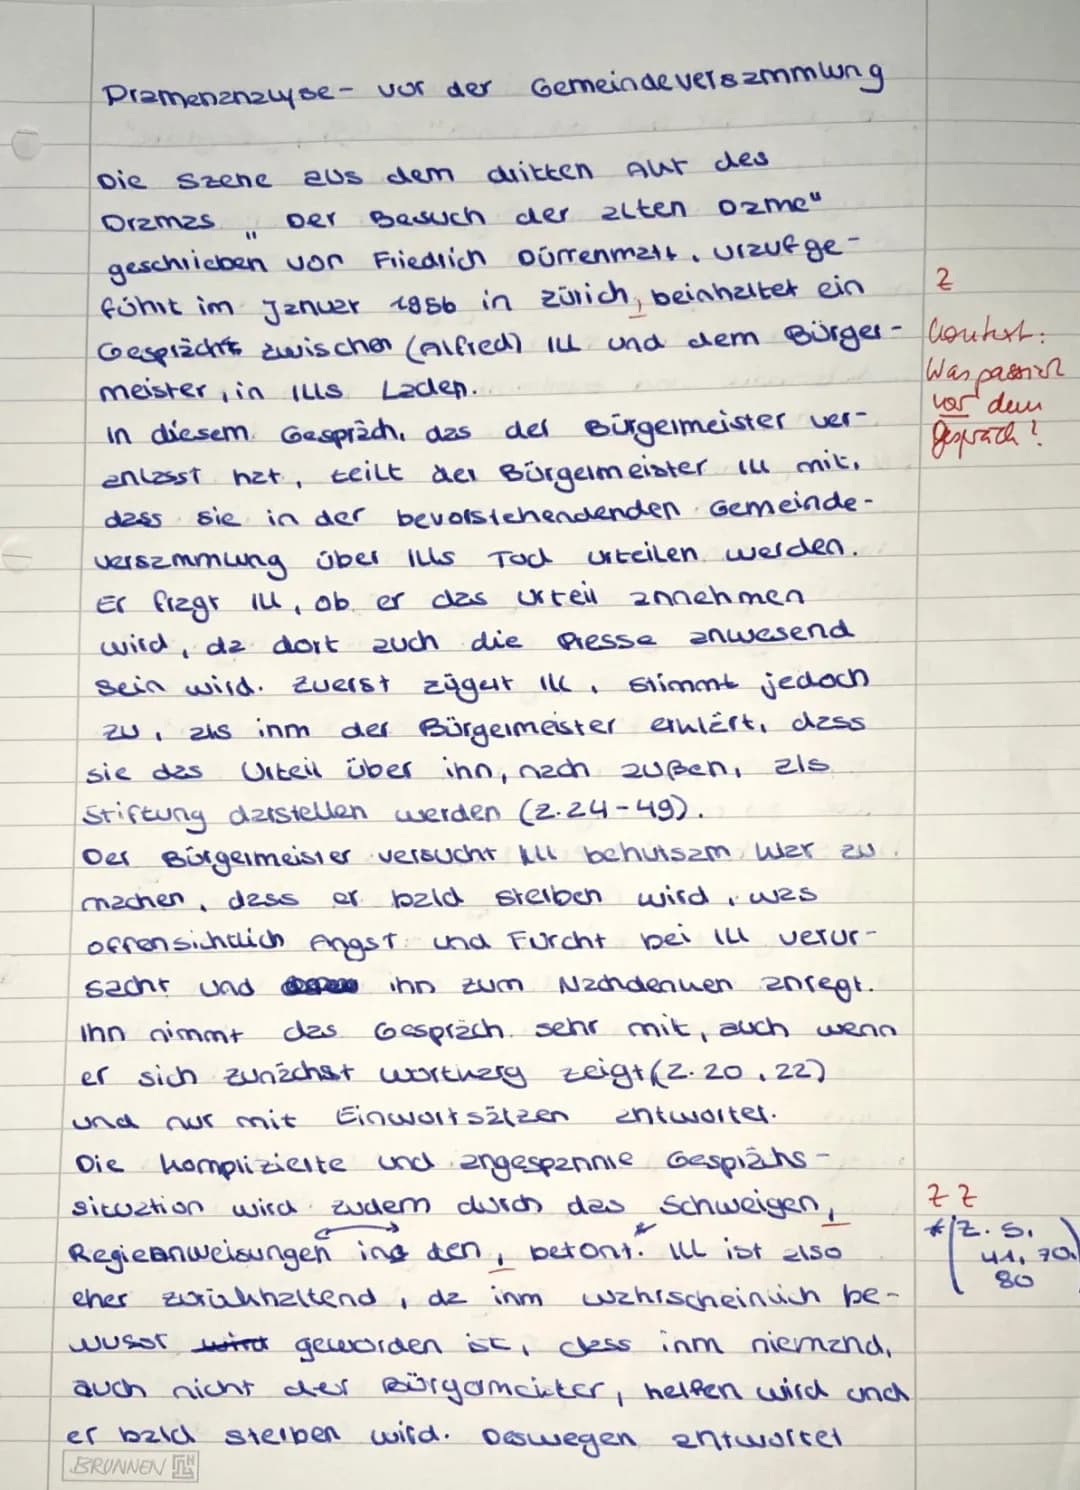 Dramenanalyse - vor der Gemeindeversammlung
Die Szene aus dem dritten Akt des
Dramas „Der Besuch der alten Dame"
geschrieben von Friedrich Dürrenmatt, uraufge-
führt im Januar 1956 in Zürich, beinhaltet ein
Z
Gespräch zwischen (Alfred) Ill und dem Bürger-
Kontext:
meister, in Ills Laden.
Was passiert
vor dem
In diesem Gespräch, das der Bürgermeister ver-
Gespräch?
anlasst hat, teilt der Bürgermeister Ill mit,
dass sie in der bevorstehendenden Gemeinde-
versammung über Ills Tod urteilen werden.
Er fragt Ill, ob er das Urteil annehmen
wird, da dort auch die Presse anwesend
sein wird. Zuerst zögert Ill, stimmt jedoch
zu, als ihm der Bürgermeister erklärt, dass
sie das Urteil über ihn, nach außen, als
Stiftung darstellen werden (Z.24-49).
Der Bürgermeister versucht Ill behutsam klar zu
machen, dass er bald sterben wird, was
offensichtlich Angst und Furcht bei Ill verur-
sacht und ihn zum Nachdenken anregt.
Ihn nimmt das Gespräch sehr mit, auch wenn
er sich zunächst wortkarg zeigt (Z.20,22)
und nur mit Einwortsätzen antwortet.
Die komplizierte und angespannte Gesprächs-
situation wird zudem durch das Schweigen,
Z Z
Regieanweisungen in den, betont. Ill ist also
* (Z. S.
41, 70,
80
eher zurückhaltend, da ihm wahrscheinlich be-
wusst wird geworden ist, dass ihm niemand,
auch nicht der Bürgermeister, helfen wird und
er bald sterben wird. Deswegen antwortet
BRUNNEN